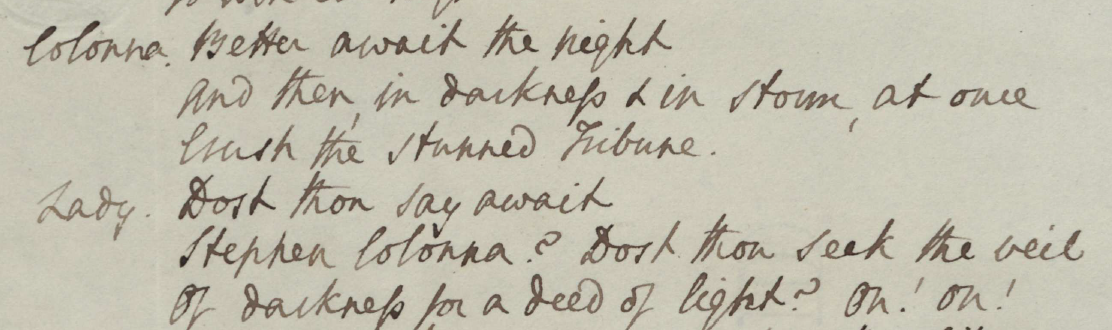 Colonna. Better await the night
And then, in darkness & in storm, at once
Crush the stunned Tribune.
Lady. Dost thou say await
Stephen Colonna? Dost thou seek the veil
Of darkness for a deed of light? On! On!